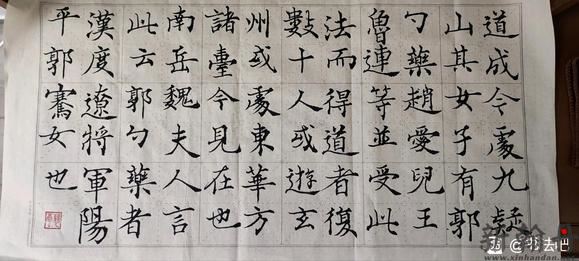 道成今處九疑
山其女子有郭
勺藥趙愛兒王
魯連等並受此
法而得道者復
數十人或遊玄
州或處東華方
諸臺今見在也
南岳魏夫人言
此云郭勺藥者
漢度遼將軍陽
平郭騫女也
www.xinhandan.com